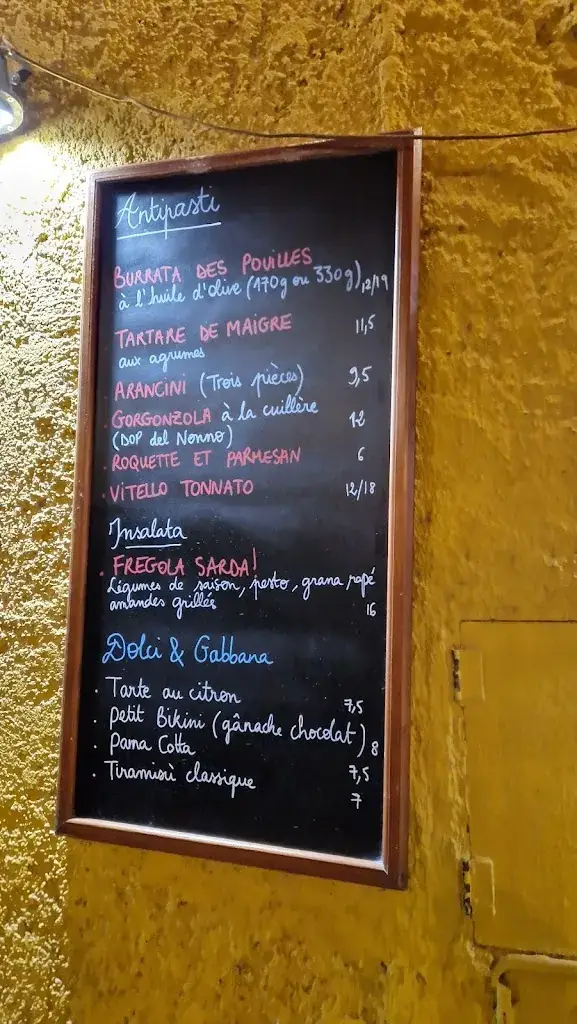 Antipasti
BURRATA DES POUILLES
à l'huile d'olive (170g ou 330g) 12/19
TARTARE DE MAIGRE 11,5
aux agrumes
ARANCINI (Trois pièces) 9,5
GORGONZOLA à la cuillère 12
(DOP del Nonno)
ROQUETTE ET PARMESAN 6
VITELLO TONNATO 12/18
Insalata
FREGOLA SARDA!
Légumes de saison, pesto, grana rapé
amandes grillés 16
Dolci & Gabbana
Tarte au citron 7,5
Petit Bikini (gânache chocolat) 8
Pana Cotta 7,5
Tiramisù classique 7